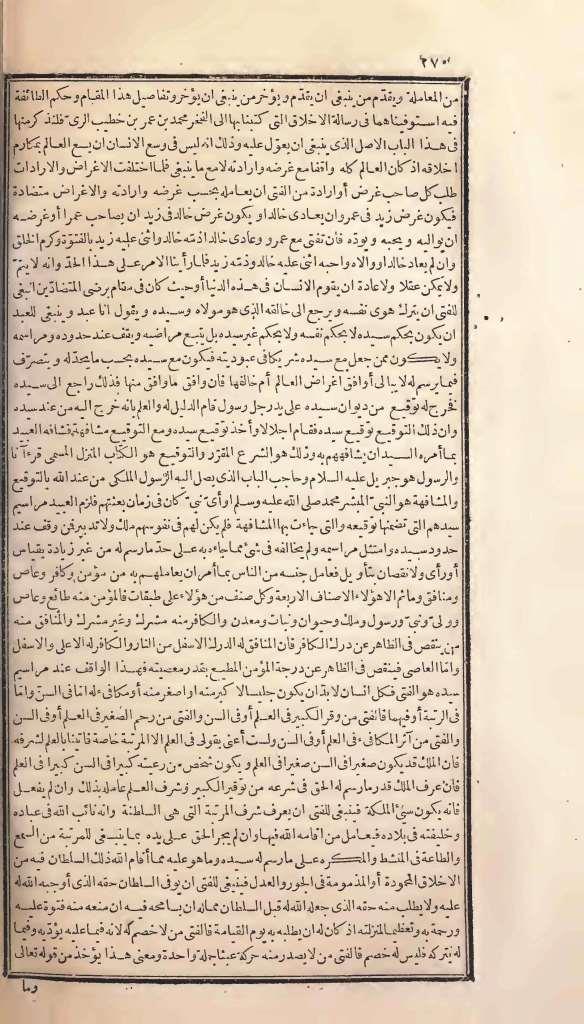 ٢٧٥
من المعاملة ويقدّم من ينبغى ان يقدّم ويؤخر من ينبغى ان يؤخر وتفاصيل هذا المقام وحكم الطائفة
فيه استوفيناهما فى رسالة الاخلاق التى كتبنا بها الى الفخر محمد بن عمر بن خطيب الرى فلنذكر منها
فى هذا الباب الاصل الذى ينبغى ان يعوّل عليه وذلك انه ليس فى وسع الانسان ان يسع العالم بمكارم
اخلاقه اذ كان العالم كله واقفا مع غرضه وارادته لا مع ما ينبغى فلما اختلفت الاغراض والارادات
طلب كل صاحب غرض أو ارادة من الفتى ان يعامله بحسب غرضه وارادته والاغراض متضادة
فيكون غرض زيد فى عمرو ان يعادى خالدا ويكون غرض خالد فى زيد ان يصاحب عمرا أو غرضه
ان يواليه ويحبه ويودّه فان تفتى مع عمرو وعادى خالدا ذمّه خالد واثنى عليه زيد بالفتوّة وكرم الخلق
وان لم يعاد خالدا ووالاه واحبه اثنى عليه خالد وذمّه زيد فلما رأينا الامر على هذا الحدّ وانه لا يتمّ
ولا يمكن عقلا ولا عادة ان يقوم الانسان فى هذه الدنيا أو حيث كان فى مقام يرضى المتضادّين انبغى
للفتى ان يترك هوى نفسه ويرجع الى خالقه الذى هو مولاه وسيده ويقول انا عبد وينبغى للعبد
ان يكون بحكم سيده لا بحكم نفسه ولا بحكم غير سيده بل يتبع مراضيه ويقف عند حدوده ومراسمه
ولا يكون ممن جعل مع سيده شريكا فى عبوديته فيكون مع سيده بحسب ما يحدّ له ويتصرّف
فيما يرسم له لا يبالى أوافق اغراض العالم أم خالفها فان وافق ما وافق منها فذلك راجع الى سيده
فخرج له توقيع من ديوان سيده على يد رجل رسول قام الدليل له والعلم بأنه خرج اليه من عند سيده
وان ذلك التوقيع توقيع سيده فقام اجلالا وأخذ توقيع سيده ومع التوقيع مشافهة فشافه العبد
بما أمره السيد ان يشافهه به وذلك هو الشرع المقرّر والتوقيع هو الكتاب المنزل المسمى قرءآنا
والرسول هو جبريل عليه السلام وحاجب الباب الذى يصل اليه الرسول الملكى من عند الله بالتوقيع
والمشافهة هو النبىّ المبشر محمد صلى الله عليه وسلم أو أىّ نبىّ كان فى زمان بعثتهم فلزم العبيد مراسيم
سيدهم التى تضمنها توقيعه والتى جاءت بها المشافهة فلم يكن لهم فى نفوسهم ملك ولا تدبير فمن وقف عند
حدود سيده وامتثل مراسمه ولم يخالفه فى شئ مما جاء به على حدّ ما رسم له من غير زيادة بقياس
أو رأى ولا نقصان بتأويل فعامل جنسه من الناس بما أمر ان يعاملهم به من مؤمن وكافر وعاص
ومنافق وما ثم الا هؤلاء الاصناف الاربعة وكل صنف من هؤلاء على طبقات فالمؤمن منه طائع وعاص
وولىّ ونبىّ ورسول وملك وحيوان ونبات ومعدن والكافر منه مشرك وغير مشرك والمنافق منه
من ينقص فى الظاهر عن درك الكافر فان المنافق له الدرك الاسفل من النار والكافر له الاعلى والاسفل
وامّا العاصى فينقص فى الظاهر عن درجة المؤمن المطيع بقدر معصيته فهذا الواقف عند مراسيم
سيده هو الفتى فكل انسان لا بدّ ان يكون جليسا لاكبر منه أو اصغر منه أو مكافىء له امّا فى السنّ وامّا
فى الرتبة أو فيهما فالفتى من وقر الكبير فى العلم أو فى السن والفتى من رحم الصغير فى العلم أو فى السن
والفتى من آثر المكافىء فى العلم أو فى السن ولست أعنى بقولى فى العلم الا المرتبة خاصة فأتينا بالعلم لشرفه
فان الملك قد يكون صغيرا فى السن صغيرا فى العلم ويكون شخص من رعيته كبيرا فى السن كبيرا فى العلم
فان عرف الملك قدر ما رسم له الحق فى شرعه من توقير الكبير وشرف العلم عامله بذلك وان لم يفعل
فانه يكون سىُّ الملكة فينبغى للفتى ان يعرف شرف المرتبة التى هى السلطنة وانه نائب الله فى عباده
وخليفته فى بلاده فيعامل من اقامه الله فيها وان لم يجر الحق على يده بما ينبغى للمرتبة من السمع
والطاعة فى المنشط والمكره على ما رسم له سيده وما هو عليه مما أقام الله ذلك السلطان فيه من
الاخلاق المحمودة أو المذمومة فى الجور والعدل فينبغى للفتى ان يوفى السلطان حقه الذى أوجبه الله له
عليه ولا يطلب منه حقه الذى جعله الله له قبل السلطان مما له ان يسامحه فيه ان منعه منه فتوة عليه
ورحمة به وتعظيما لمنزلته اذ كان له ان يطلبه به يوم القيامة فالفتى من لا خصم له لانه فيما عليه يؤدّيه وفيما
له يتركه فليس له خصم فالفتى من لا يصدر منه حركة عبثا جملة واحدة ومعنى هذا يؤخذ من قوله تعالى
وما